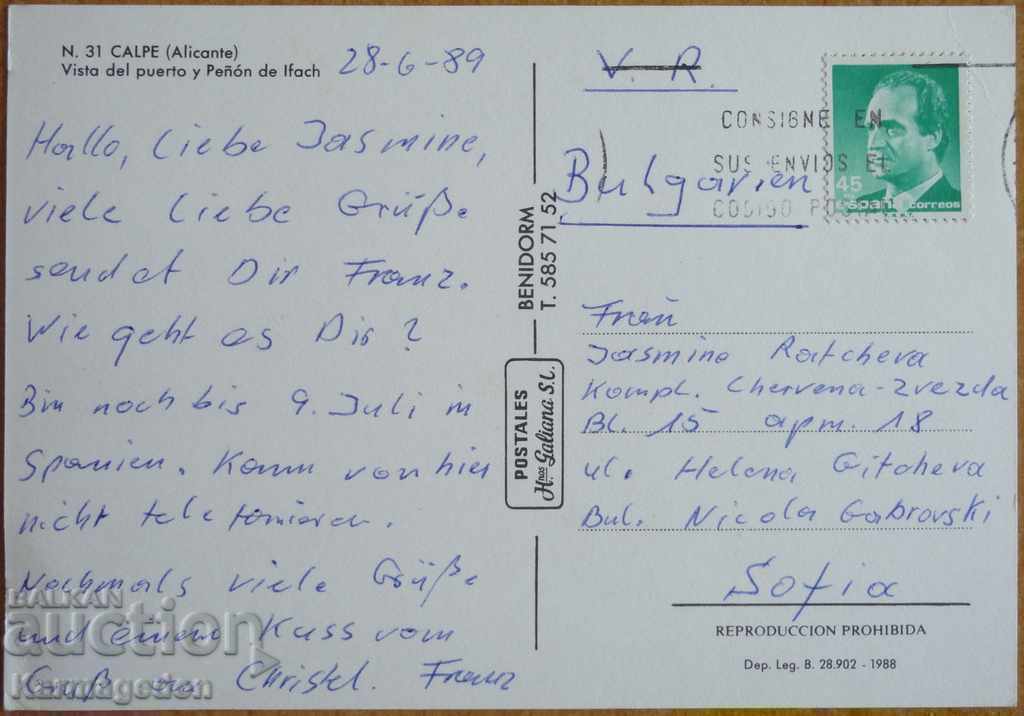 N. 31 CALPE (Alicante)
Vista del puerto y Peñón de Ifach
28-6-89
Hallo, liebe Jasmine,
viele liebe Grüße
sendet Dir Franz.
Wie geht es Dir?
Bin noch bis 9. Juli in
Spanien. Kann von hier
nicht telefonieren.
Nochmals viele Grüße
und einen Kuss vom
Franz
Gruß an Christel.
BENIDORM
T. 585 71 52
POSTALES
Hnos Galiana S.L.
V. R.
Bulgarien
CONSIGNE EN
SUS ENVIOS EL
CODIGO POSTAL
45
españa correos
Frau
Jasmine Ratcheva
Kompl. Chervena-zvezda
Bl. 15 apm. 18
ul. Helena Gitcheva
Bul. Nicola Gabrovski
Sofia
REPRODUCCION PROHIBIDA
Dep. Leg. B. 28.902 - 1988
BALKAN
auction
Karmageden